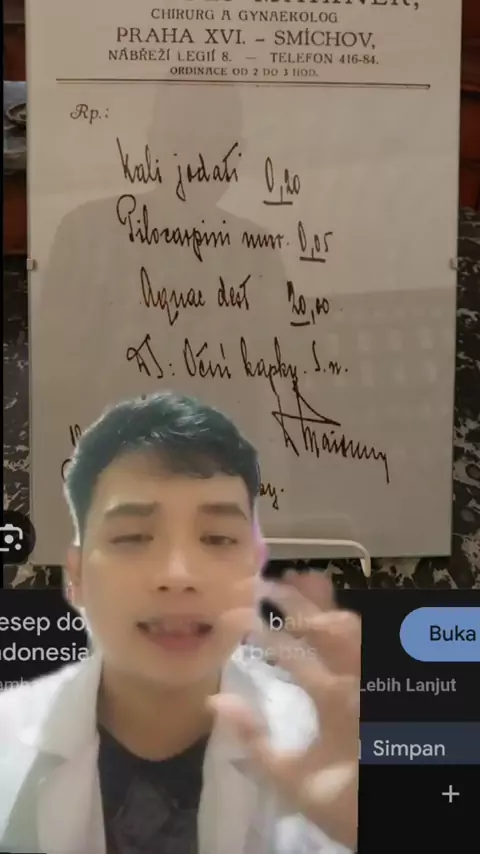 CHIRURG A GYNAEKOLOG
PRAHA XVI. – SMÍCHOV,
NÁBŘEŽÍ LEGIÍ 8. — TELEFON 416-84.
ORDINACE OD 2 DO 3 HOD.
Rp.:
Kali jodati 0,20
Pilocarpini mur. 0,05
Aquae dest 20,00
DS: Oční kapky. S.n.
esep do
Buka
donesia
bebas
Lebih Lanjut
Simpan
+